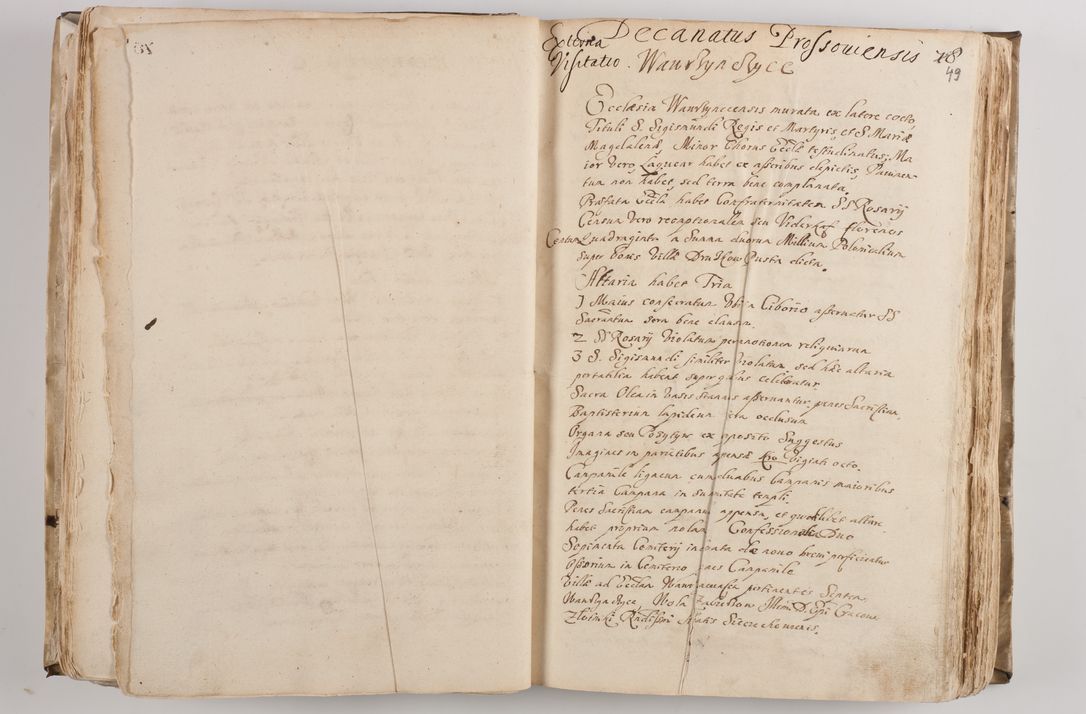 Decanatus Prossoviensis 18
49
Externa
Visitatio. Wawrzynczyce
Ecclesia Wawrzyncensis murata ex latere cocto,
Tituli S. Sigismundi Regis et Martyris, et S. Mariæ
Magdalenæ, Minor Chorus Eccłæ testudinatus, Ma
ior vero Laquear habet ex asseribus depictis, Pavimen
tum non habet, sed terra bene complanata.
Præfata Eccła habet Confraternitatem SS Rosarij
Censum vero reemptionalem seu Viderkaf florenos
Census Quadraginta a Summa duorum Millium Polonicalium
super bonis Villæ Druszkow Pusta dicta.
Altaria habet Tria
1 Maius consecratum Ubi in Ciborio asservatur SS
Sacramentum sera bene clausum.
2 SS Rosarij Violatum per motionem reliquiarum
3 S. Sigismundi similiter violatum. sed hæc altaria
portatilia habent super quibus celebratur.
Sacra Olea in vasis stanneis asservantur penes Sacristiam.
Baptisterium lapideum sera occlusum
Organa seu Pozytyw ex oposito Suggestus
Imagines in parietibus apensæ Viginti octo.
Campanile ligneum cum duabus Campanis maioribus
tertia Campana in sumitate templi.
Penes Sacristiam campanam appensa, et quodlibet altare
habet propriam nolam Confessionalia Duo
Sepimenta Cemiterij de novo brevi perficientur
Ossorium in Cemiterio penes Campanile
Villæ ad Ecclam pertinentes Septem,
Wawrzynczyce, Wola
Złotniki